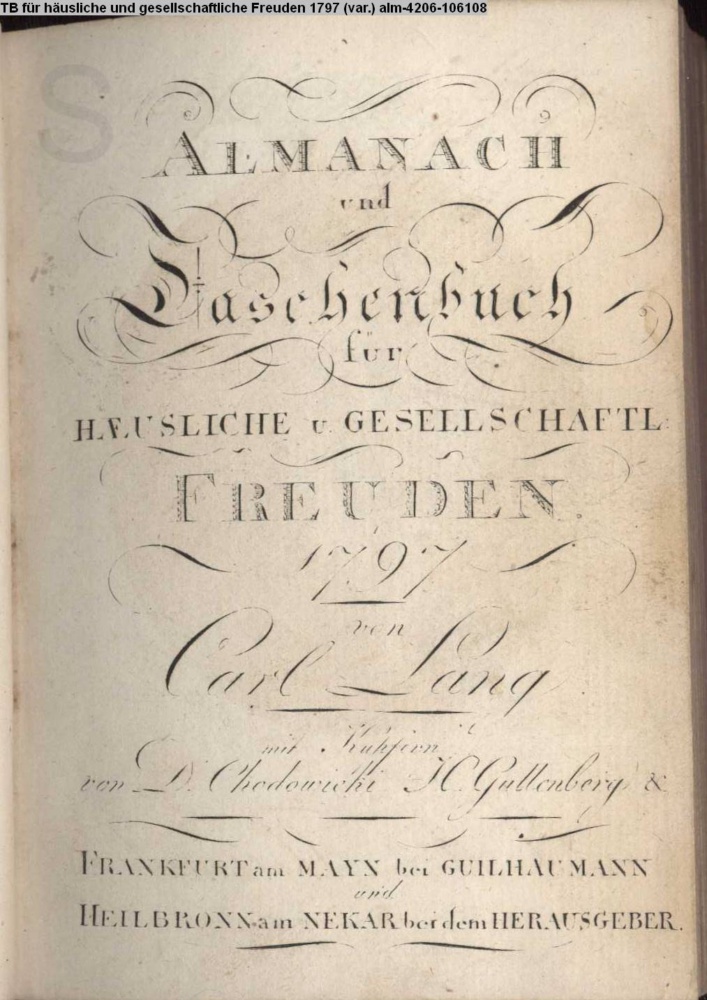 TB für häusliche und gesellschaftliche Freuden 1797 (var.) alm-4206-106108
S
ALMANACH
und
Taschenbuch
für
HÆUSLICHE u. GESELLSCHAFTL:
FREUDEN.
1797
von
Carl Lang
mit Kupfern
von D. Chodowicki H. Guttenberg &
FRANKFURT am MAYN bei GUILHAUMANN
und
HEILBRONN am NEKAR bei dem HERAUSGEBER.